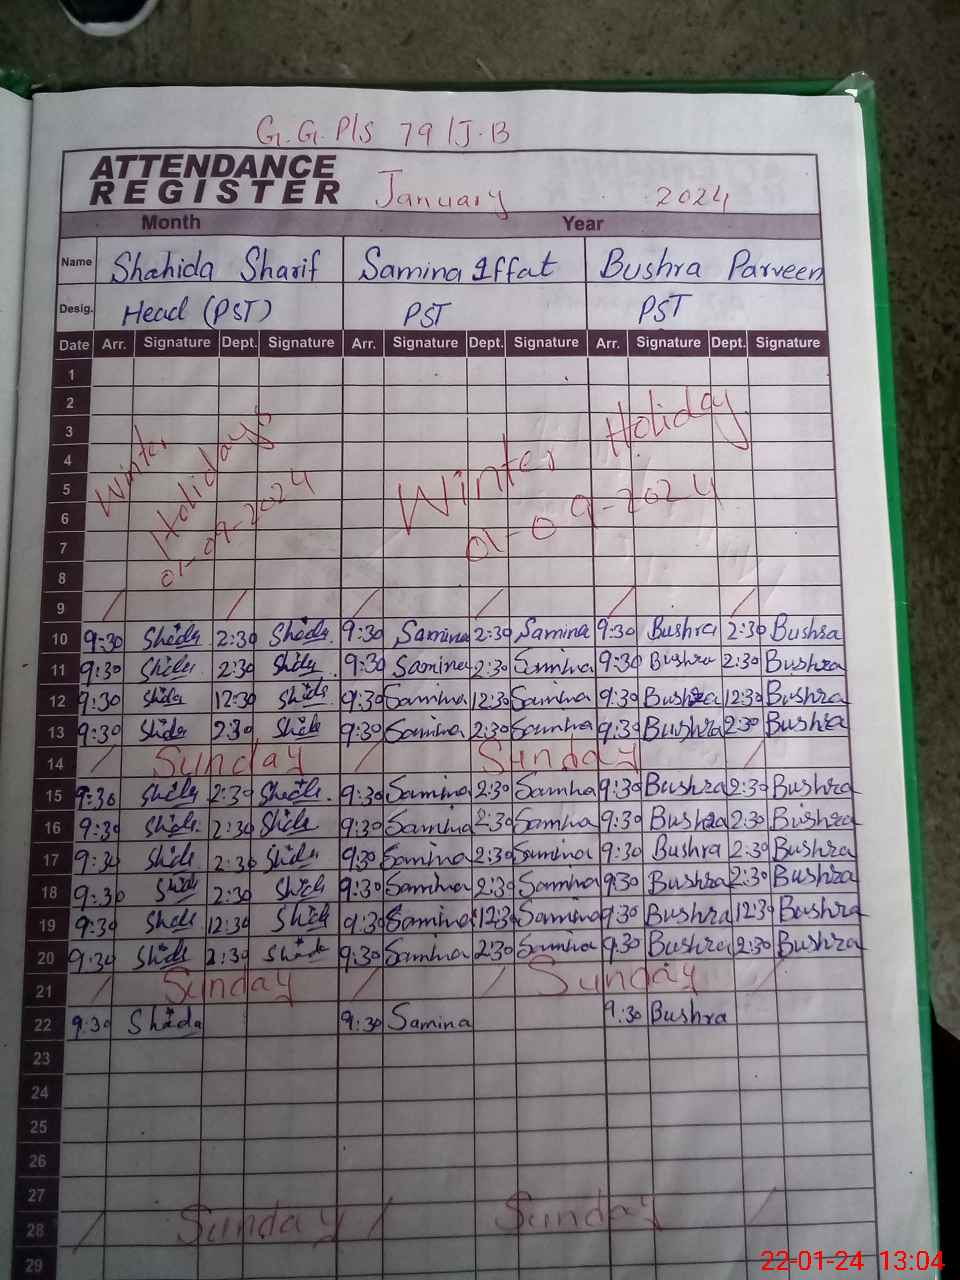 G.G.P/S 79/J.B
ATTENDANCE
REGISTER January 2024
Month Year
Name Shahida Sharif Samina Iffat Bushra Parveen
Desig. Head (PST) PST PST
Date Arr. Signature Dept. Signature Arr. Signature Dept. Signature Arr. Signature Dept. Signature
1
2
3
4
5
6
7
8
9
Winter
Holidays
01-09-2024
Winter Holiday
01-09-2024
10 9:30 2:30 9:30 Samina 2:30 Samina 9:30 Bushra 2:30 Bushra
11 9:30 2:30 9:30 Samina 2:30 Samina 9:30 Bushra 2:30 Bushra
12 9:30 12:30 9:30 Samina 12:30 Samina 9:30 Bushra 12:30 Bushra
13 9:30 2:30 9:30 Samina 2:30 Samina 9:30 Bushra 2:30 Bushra
14 Sunday Sunday
15 9:30 2:30 9:30 Samina 2:30 Samina 9:30 Bushra 2:30 Bushra
16 9:30 2:30 9:30 Samina 2:30 Samina 9:30 Bushra 2:30 Bushra
17 9:30 2:30 9:30 Samina 2:30 Samina 9:30 Bushra 2:30 Bushra
18 9:30 2:30 9:30 Samina 2:30 Samina 9:30 Bushra 2:30 Bushra
19 9:30 12:30 9:30 Samina 12:30 Samina 9:30 Bushra 12:30 Bushra
20 9:30 2:30 9:30 Samina 2:30 Samina 9:30 Bushra 2:30 Bushra
21 Sunday Sunday
22 9:30 Shada 9:30 Samina 9:30 Bushra
23
24
25
26
27
28 Sunday Sunday
29
22-01-24 13:04